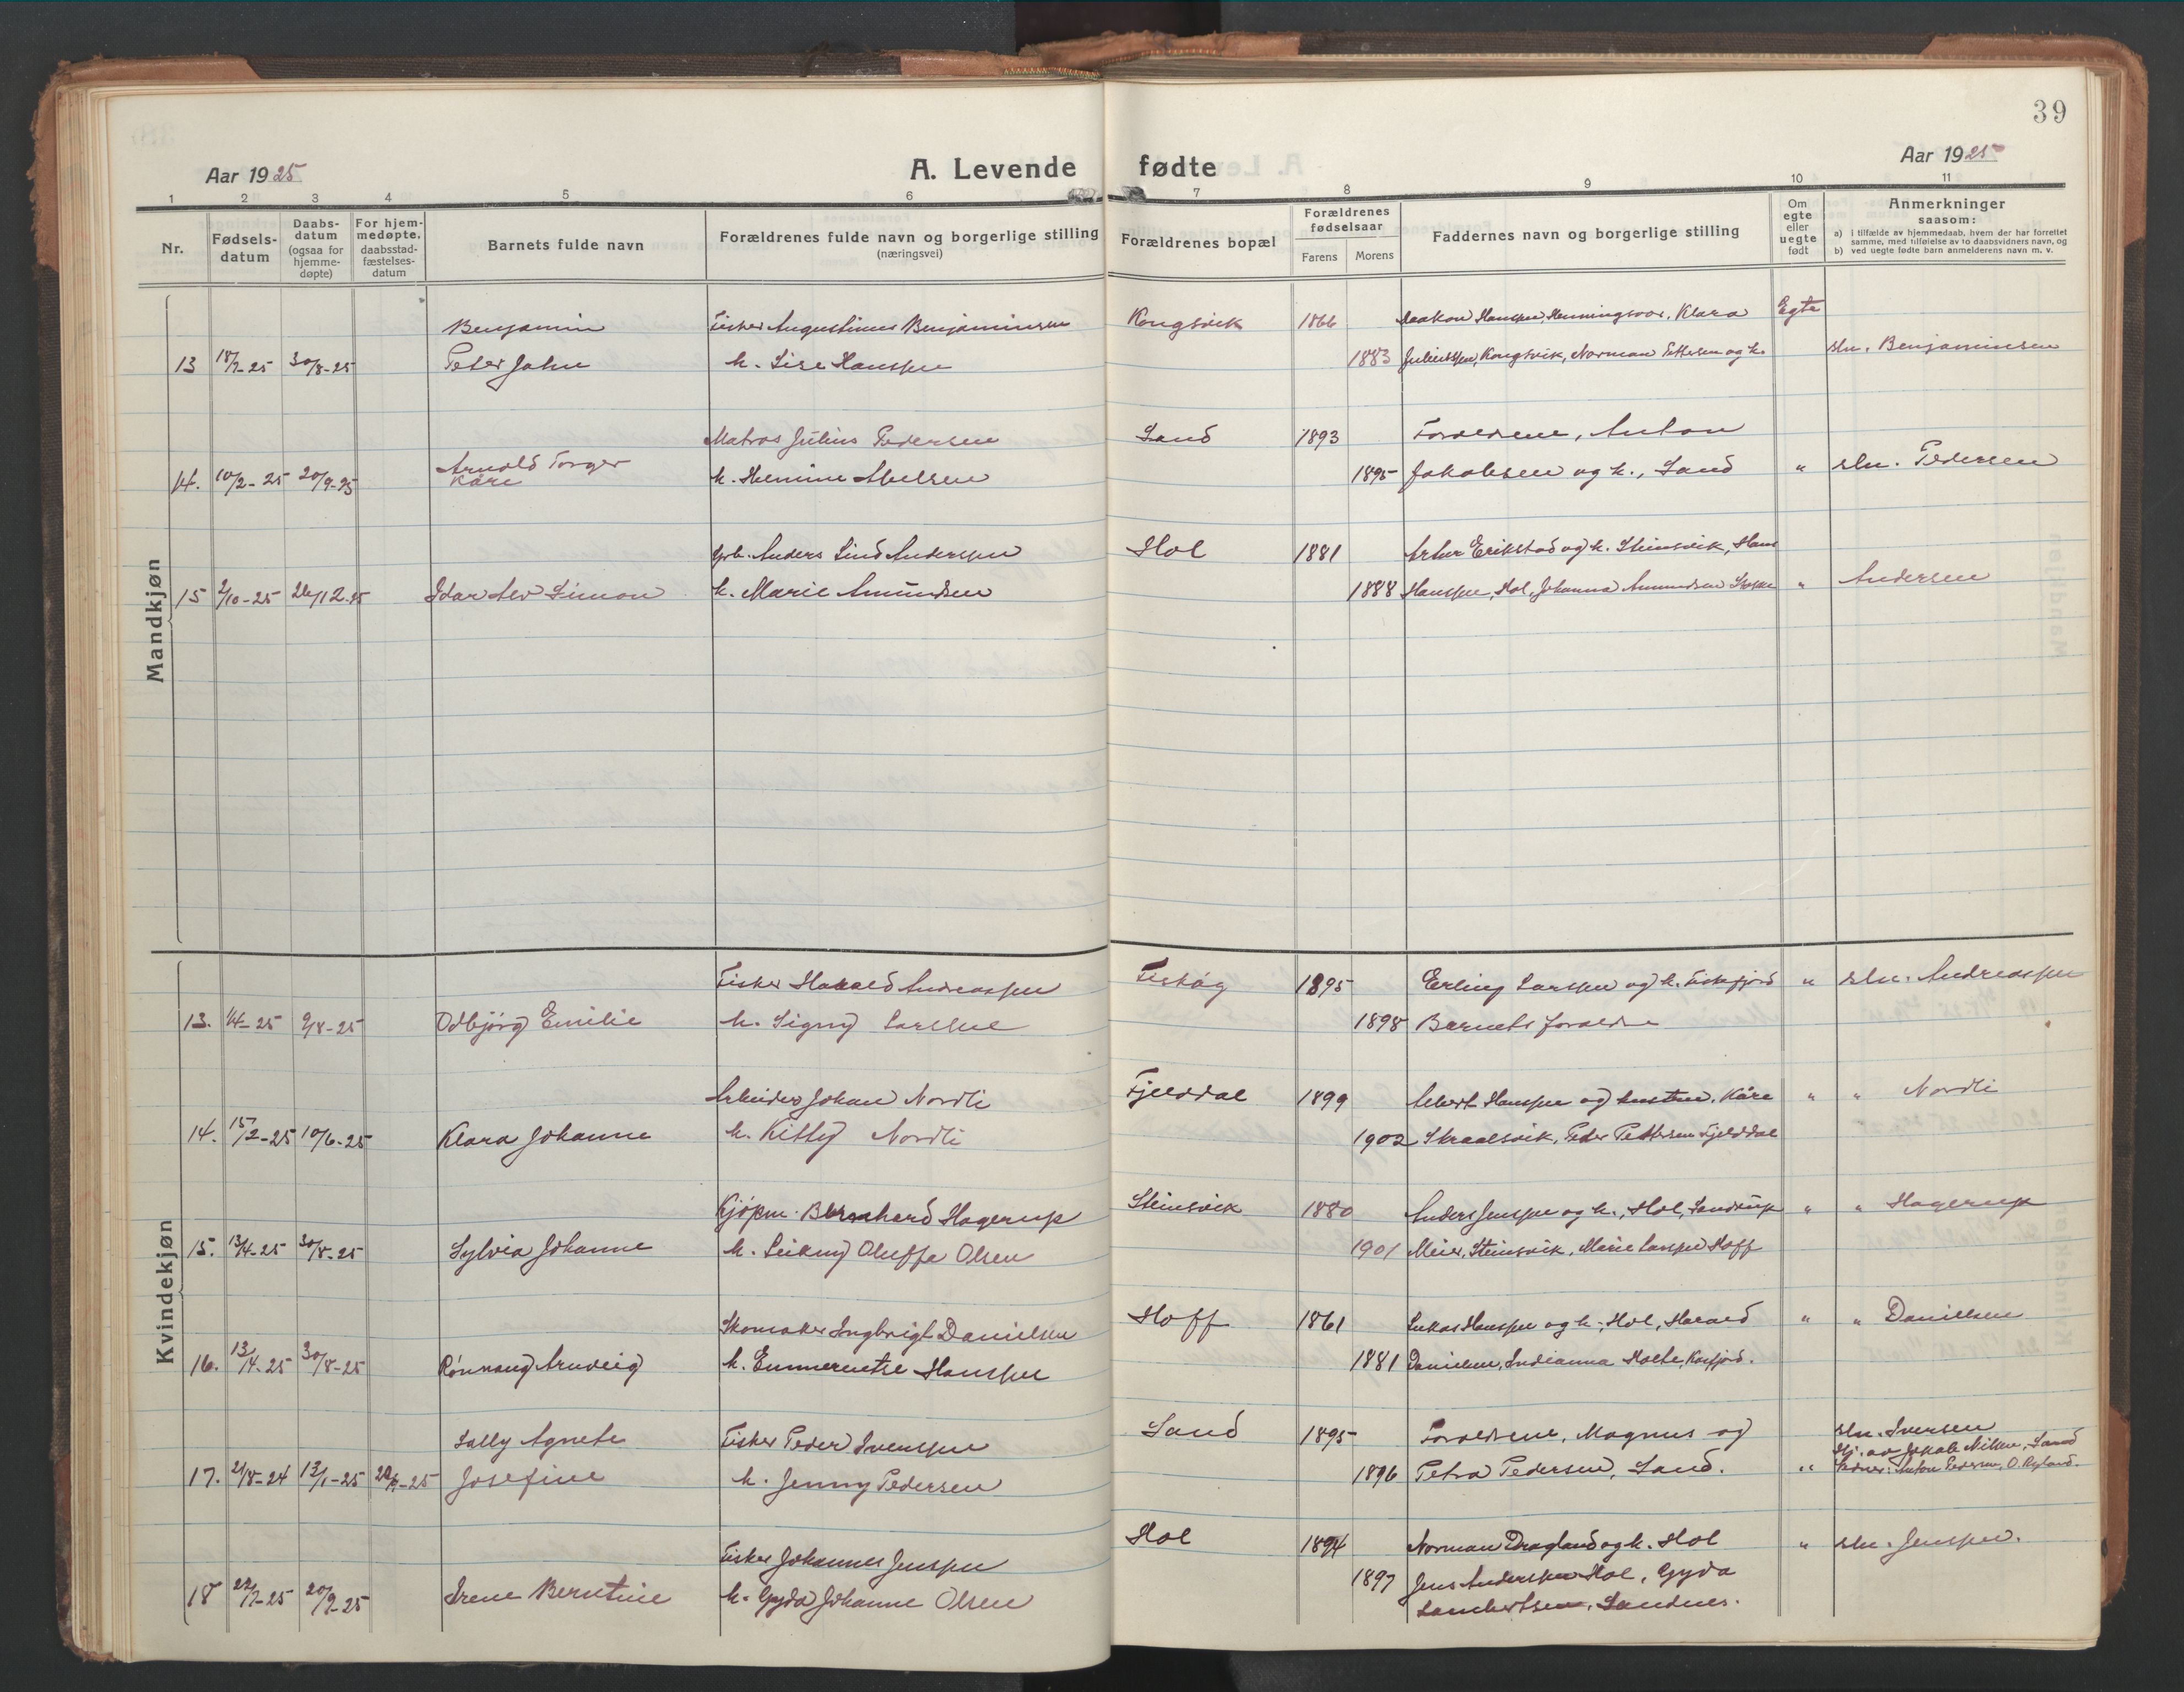 39
Aar 1925
A. Levende fødte
Aar 1925
1 2 3 4 5 6 7 8 9 10 11
Nr.
Fødsels-
datum
Daabs-
datum
(ogsaa for
hjemme-
døpte)
For hjem-
medøpte.
daabsstad-
fæstelses-
datum
Barnets fulde navn
Forældrenes fulde navn og borgerlige stilling
(næringsvei)
Forældrenes bopæl
Forældrenes
fødselsaar
Farens Morens
Faddernes navn og borgerlige stilling
Om
egte
eller
uegte
født
Anmerkninger
saasom:
a) i tilfælde av hjemmedaab, hvem der har forrettet
samme, med tilføielse av to daabsvidners navn, og
b) ved uegte fødte barn anmelderens navn m. v.
Mandkjøn
Benjamin Fisker Augustinus Benjaminsen Kongsvik 1866 Haakon Hanssen, Henningsvær, Klara Egte
13 18/7-25 30/8-25 Peter John h. Lise Hanssen 1883 Kongsvik, Norman Pettersen og h. sln. Benjaminsen
Matros Julius Pedersen Sand 1893 Forældrene, Anton
14. 10/2-25 20/9-25 Arnold Torger
Kåre h. Hemine Abelsen 1895 Jakobsen og h., Sand " sln. Pedersen
Anders Lind Anderssen Hol 1881 Artur Erikstad og h. Steinsvik, Hans
15 2/10-25 26/12-25 Idar Alv Simon h. Marie Amundsen 1888 Hanssen, Hol, Johanna Amundsen " Andersen
Kvindekjøn
Fisker Harald Andreassen Fiskøg 1895 Erling Larssen og h. Fiskfjord " sln. Andreassen
13. 1/4-25 9/8-25 Odbjørg Emilie h. Signy Larssen 1898 Barnets forældre
Arbeider Johan Nordli Fjelddal 1899 Albert Hanssen og hustru, Kåre " " Nordli
14. 15/2-25 10/6-25 Klara Johanne h. Kitty Nordli 1902 Peder Pettersen Fjelddal
Kjøpm. Bernhard Hagerup Steinsvik 1880 Anders Jenssen og h., Hol, " " Hagerup
15. 13/4-25 30/8-25 Sylvia Johanne h. Leikny Oluffa Olsen 1901 Meier, Steinsvik, Marie Larssen Hoff
Skomaker Ingbrigt Danielsen Hoff 1861 Lukas Hanssen og h., Hol, Harald " " Danielsen
16. 13/4-25 30/8-25 Rønnaug Arnveig h. Emmerentse Hanssen 1881 Danielsen, Indianna Holte,
Sally Agnete Fisker Peder Ivenssen Sand 1895 Forældrene, Magnus og sln. Iversen
Hj. av Jakob Nilsen, Sand
17. 21/8-24 12/1-25 Josefine h. Jenny Pedersen 1896 Petra Pedersen, Sand. " Anton Pedersen,
Fisker Johannes Jenssen Hol 1894 Norman Dragland og h. Hol " sln. Jenssen.
18 22/7-25 20/9-25 Irene Berntine h. Gyda Johanne Olsen 1897 Jens Anderssen Hol, Gyda
Lambertsen, Sandnes.